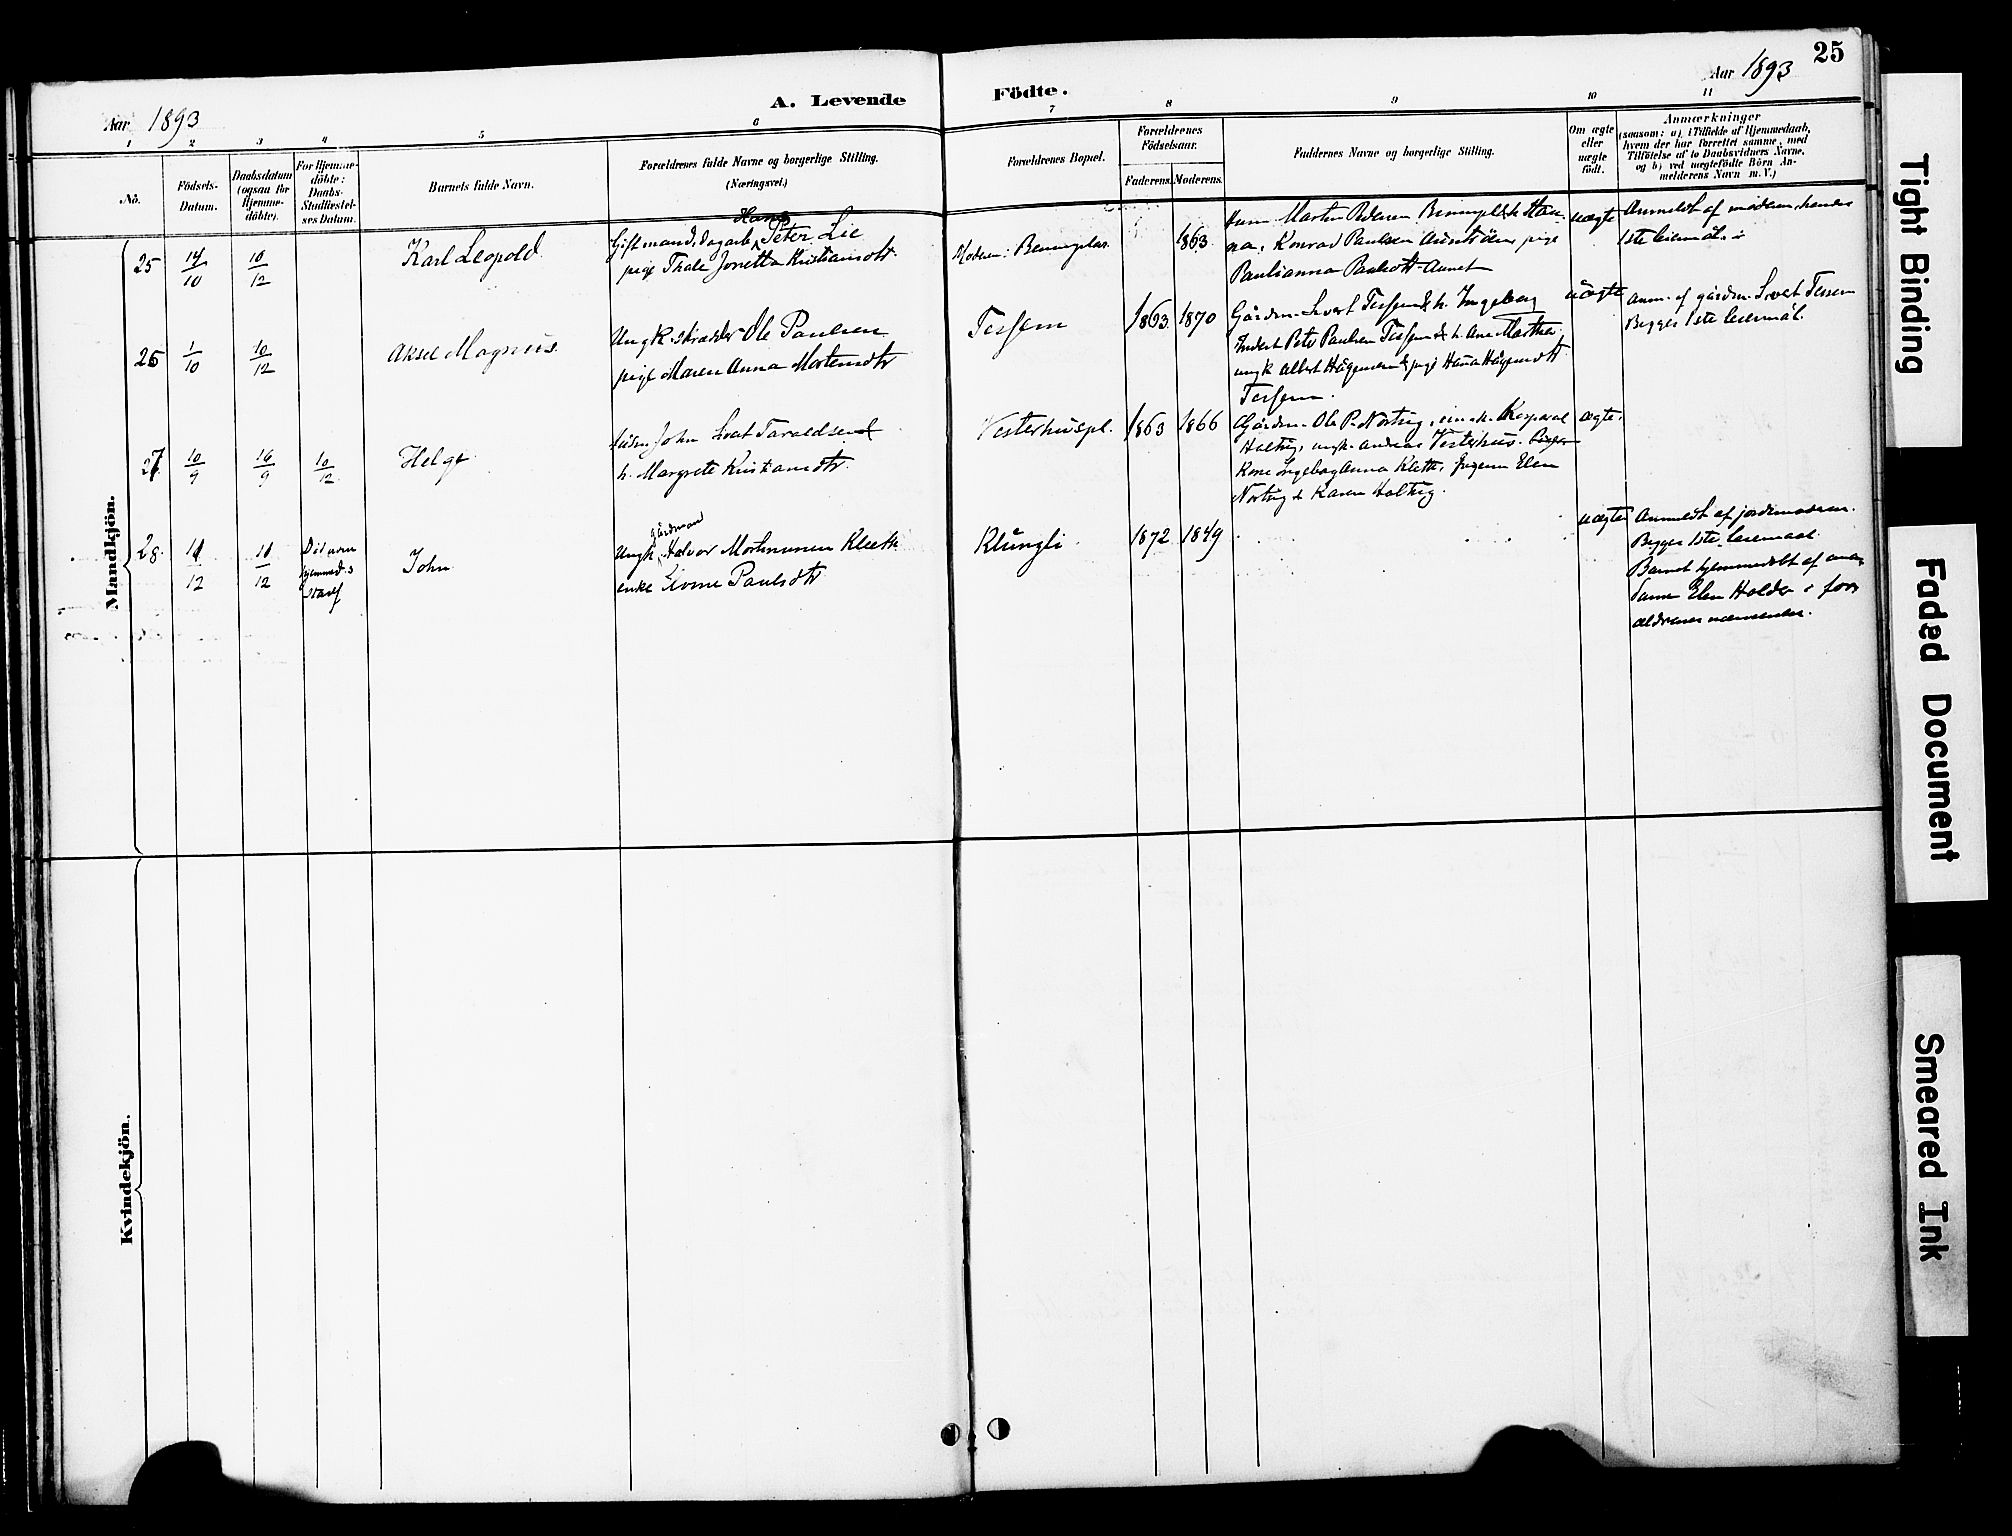 25
Aar 1893
A. Levende Födte.
Aar 1893
1 2 3 4 5 6 7 8 9 10 11
No.
Födsels-
Datum.
Daabsdatum
(ogsaa for
Hjemme-
döbte).
For Hjemme-
döbte:
Daabs-
Stadfæstel-
ses Datum.
Barnets fulde Navn.
Forældrenes fulde Navne og borgerlige Stilling.
(Næringsvei.)
Forældrenes Bopæl.
Forældrenes
Födselsaar.
Faderens. Moderens.
Faddernes Navne og borgerlige Stilling.
Om ægte
eller
uægte
födt.
Anmærkninger
(saasom: a) i Tilfælde af Hjemmedaab,
hvem der har forrettet samme, med
Tilföielse af to Daabsvidners Navne,
og b) ved uægtefödte Börn An-
melderens Navn m. V.)
Mandkjön.
25 14/10 10/12 Karl Leopold
Hans
Gift mand, dagarb. Peter Lie
pige Thale Jonetta Kristiansdtr.
Moderen:
1863
Martin Pedersen
Konrad Paulsen pige
Paulianna
uægte
Anmeldt af moderen, hendes
1ste leiermål.
26 1/10 10/12 Aksel Magnus
Ungk. skrædder Ole Paulsen
pige Maren Anna Mortensdtr
Tessem 1863 1870
Gårdm. Sivert Tessem & h. Ingeborg
Inderst Peter Paulsen Tessem & h. Ane Marthe
ungk Albert Hågensen & pige Hana Hågensdtr
Tessem.
uægte
anm. af gårdm. Sivert Tessem
Begges 1ste leiermål.
27 10/9 16/9 10/12 Helge
John Taraldsen
h. Margrete Kristiansdtr.
Vesterhuspl. 1863 1866
Gårdm. Ole P. Nortug,
ungk. Andreas Vesterhus.
Kone Ingeborg Anna Kleth, Elen
Nortug & Karen
ægte.
28. 11/12 11/12 John
gårdmand
Ungk. Halvor Mortensen Kleeth
enke Paulsdtr
Klüngli 1872 1849
uægte
Anmeldt af jordemoderen.
Begges 1ste leiermaal.
Barnet hjemmedøbt af
Elen Holden i for-
ældrenes nærværelse.
Kvindekjön.
Tight Binding
Faded Document
Smeared Ink